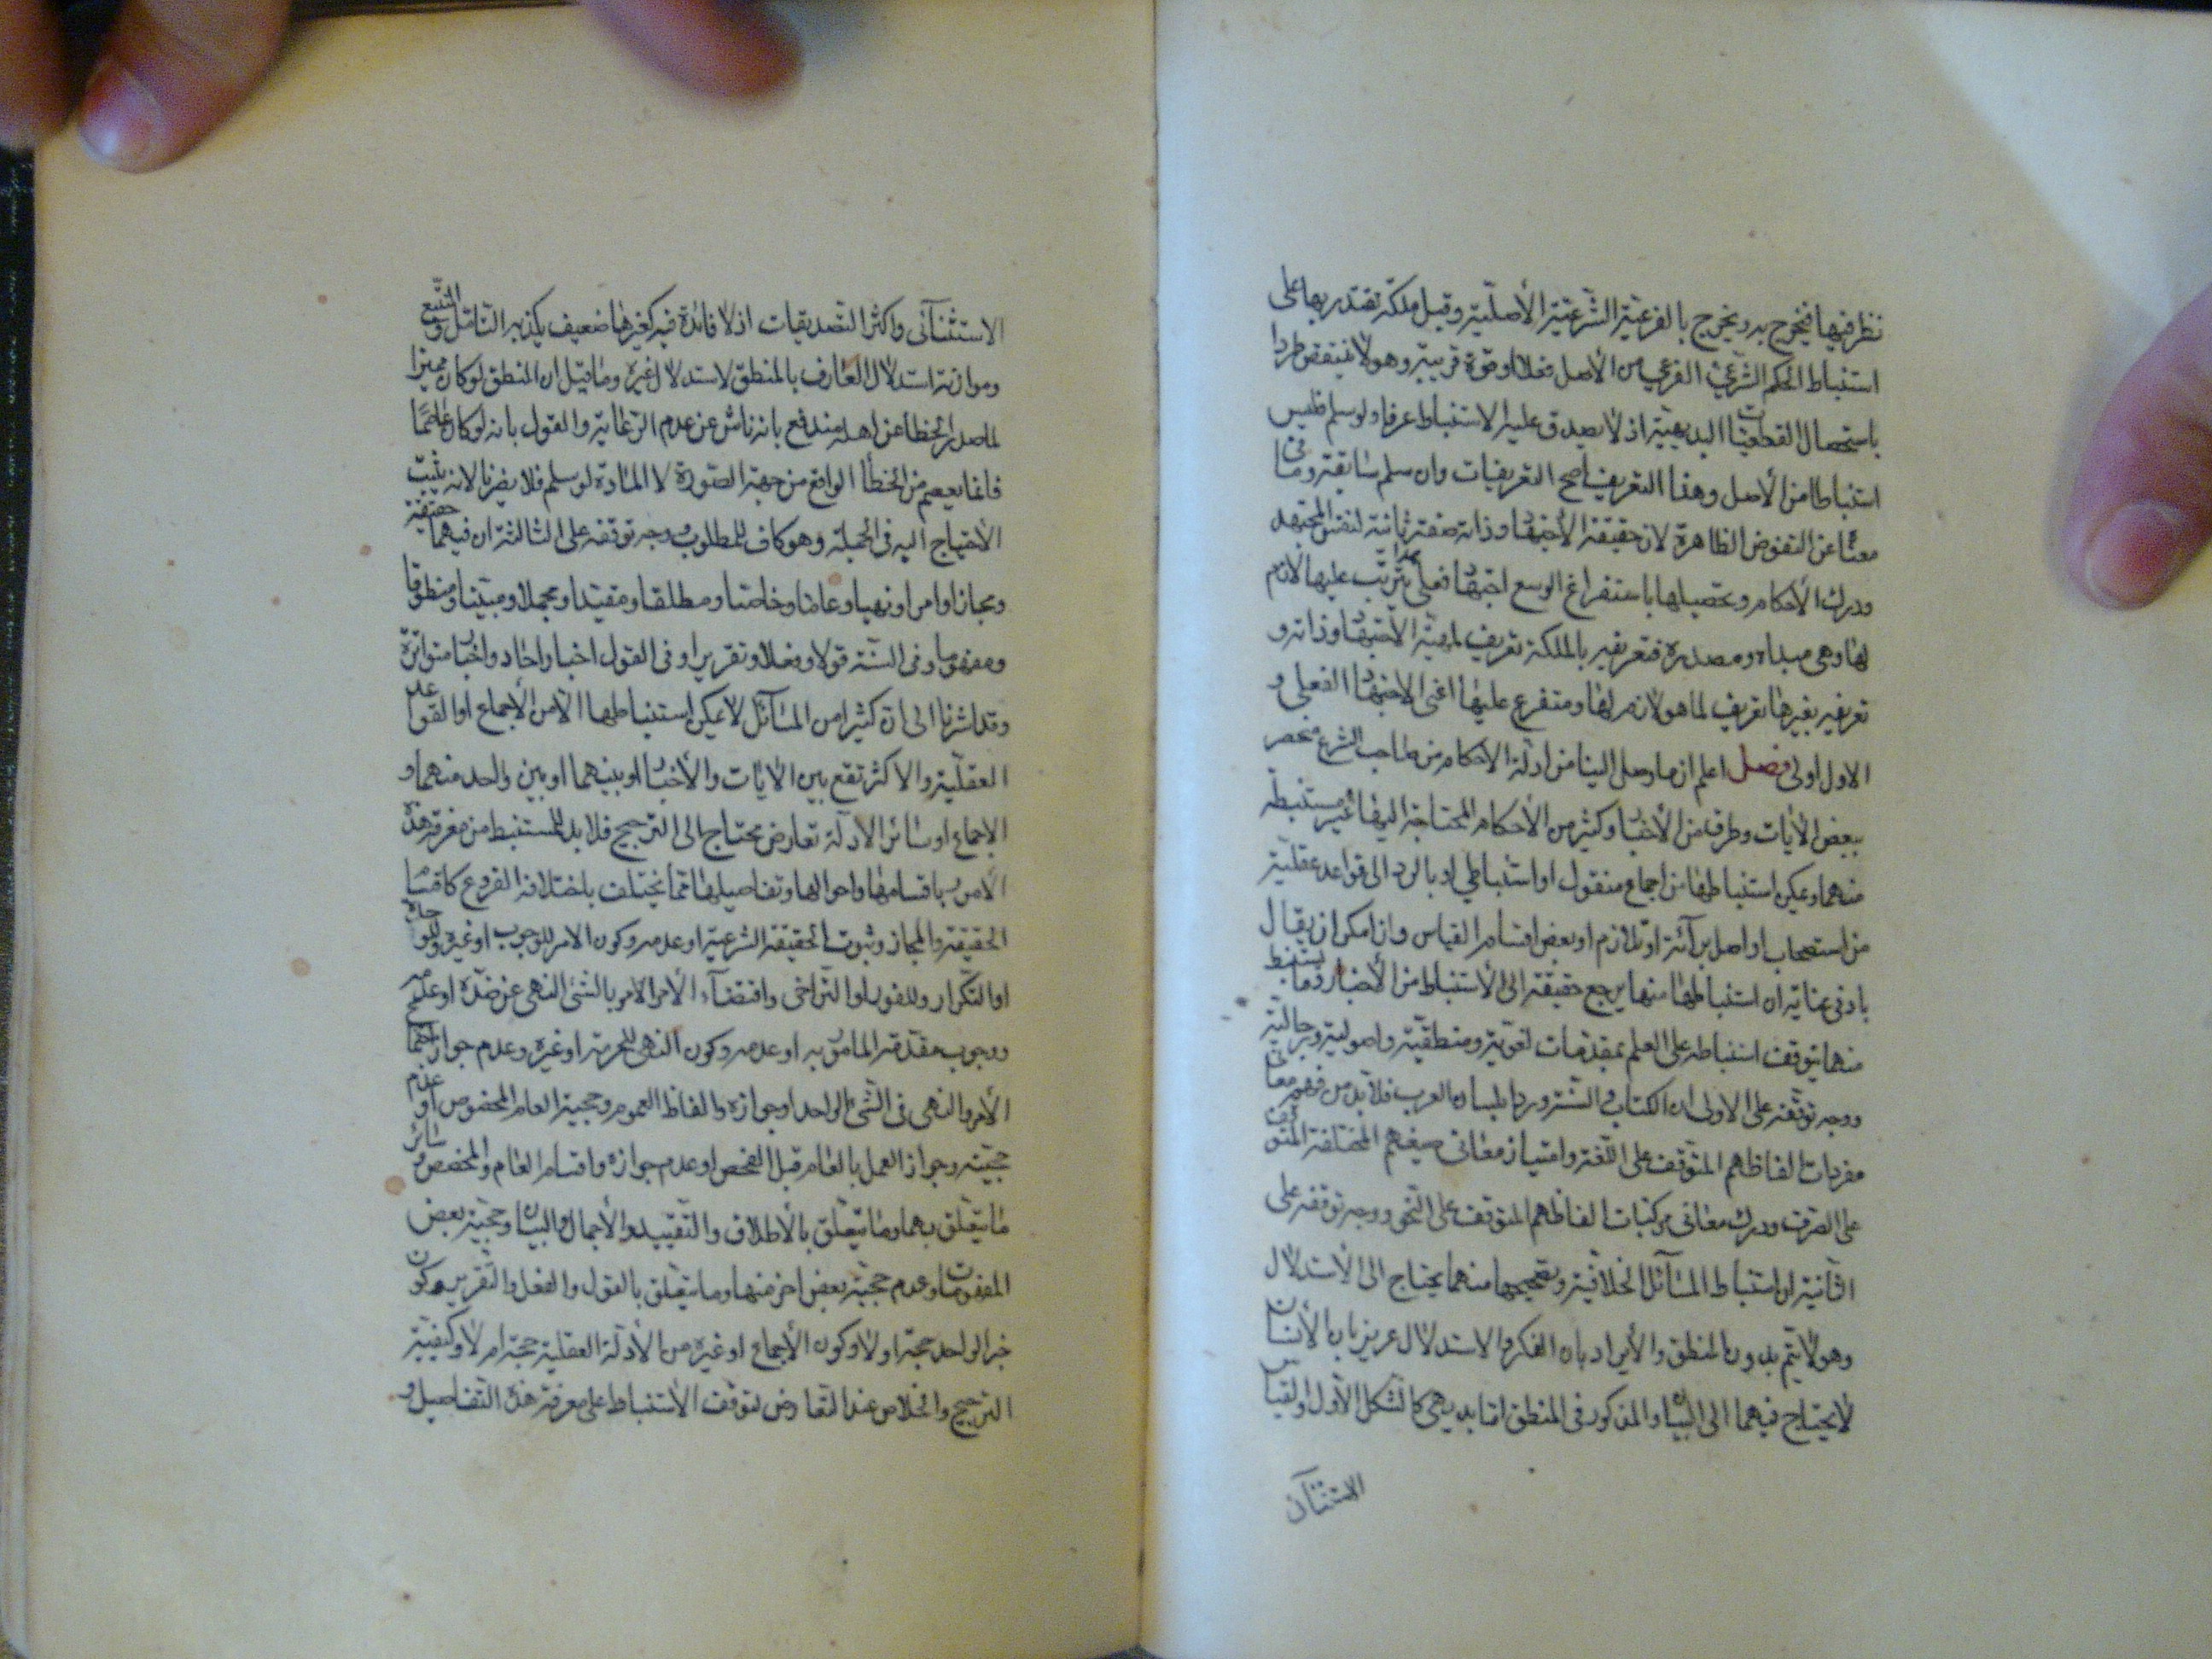 نظر فيها فيخرج به ويخرج بالفرعية الشرعية الأصلية وقيل ملكة تقتدر بها على
استنباط الحكم الشرعي الفرعي من الأصل فعلا او قوة قريبة وهو لا ينتقض طردا
باستحصال القطعيات البديهية اذ لا يصدق عليه الاستنباط عرفا ولو سلم فليس
استنباطا من الأصل وهذا التعريف اصح التعريفات وان سلم سابقته وما في
معناه عن النقوض الظاهرة لان حقيقة الأجتهاد وذاته صفة ثابتة لنفس المجتهد
ودرك الأحكام وتحصيلها باستفراغ الوسع اجتهاد فعلي يترتب عليها لازم
لها وهي مبدأه ومصدره فتعريفه بالملكة تعريف لمهية الأجتهاد وذاته و
تعريفه بغيرها تعريف لما هو لازم لها ومتفرع عليها اعني الاجتهاد الفعلي و
الاول اولى فصل اعلم ان ما وصل الينا من ادلة الاحكام من صاحب الشرع منحصر
ببعض الأيات وطرف من الأخبار وكثير من الأحكام المحتاجة اليها غير مستنبطة
منهما ويمكن استنباطها من اجماع منقول او استنباطي او بالرد الى قواعد عقلية
من استصحاب او اصل برائة او تلازم او بعض اقسام القياس وان امكن ان يقال
بادنى عناية ان استنباطها منها يرجع حقيقة الى الأستنباط من الأخبار وما يستنبط
منهما يتوقف استنباطه على العلم بمقدمات لغوية ومنطقية واصولية ورجالية
ووجه توقفه على الاولى ان الكتاب والسنة وردا بلسان العرب فلا بد من فهم معاني
مفردات الفاظهم المتوقف على اللغة وامتياز معاني صيغهم المختلفة المتوقف
على الصرف ودرك معاني مركبات الفاظهم المتوقف على النحو ووجه توقفه على
الثانية ان استنباط المسائل الخلافية وتصحيحها منهما يحتاج الى الأستدلال
وهو لا يتم بدون المنطق والأيراد بان الفكر والاستدلال غريزيان للأنسان
لا يحتاج فيهما الى البيان والمذكور في المنطق اما بديهي كالشكل الأول والقياس
الاستثنآئي
الاستثنآئي واكثر التصديقات اذ لا فائدة فيه كغيرها ضعيف يكذبه التأمل والتتبع
وموازنة استدلال العارف بالمنطق لاستدلال غيره وما قيل ان المنطق لو كان مميزا
لما صدر الخطأ عن اهله مندفع بانه ناش عن عدم الرعاية والقول بانه لو كان عاصما
فانما يعصم من الخطأ الواقع من جهة الصورة لا المادة لو سلم فلا يضرنا لانه يثبت
الأحتياج اليه في الجملة وهو كاف للمطلوب ووجه توقفه على الثالثة ان فيهما حقيقة
ومجازا وامرا ونهيا وعاما وخاصا ومطلقا ومقيدا ومجملا ومبينا ومنطوقا
ومفهوما وفي السنة قولا وفعلا وتقريرا وفي القول اخبار احاد واخبارا متواترة
وقد اشرنا الى ان كثيرا من المسائل لا يمكن استنباطها الا من الأجماع او القواعد
العقلية والاكثر تقع بين الأيات والأخبار او بينهما او بين واحد منهما و
الاجماع او سائر الادلة تعارض محتاج الى الترجيح فلا بد للمستنبط من معرفة هذه
الأمور باقسامها واحوالها وتفاصيلها مما يختلف باختلافه الفروع كاقسام
الحقيقة والمجاز وثبوت الحقيقة الشرعية او عدمه وكون الامر للوجوب او غيره وللوحدة
او التكرار وللفور او التراخي واقتضاء الأمر بالشئ النهي عن ضده او عدمه
ووجوب مقدمة المأمور به او عدمه وكون النهي للحرمة او غيره وعدم جواز اجتماع
الأمر والنهي في الشئ الواحد او جوازه والفاظ العموم وحجية العام المخصوص او عدم
حجيته وجواز العمل بالعام قبل الفحص او عدم جوازه واقسام العام والمخصص وسائر
ما يتعلق بهما وما يتعلق بالأطلاق والتقييد والأجمال والبيان وحجية بعض
المفهومات وعدم حجية بعض اخر منها وما يتعلق بالقول والفعل والتقرير وكون
خبر الواحد حجة او لا وكون الأجماع او غيره من الأدلة العقلية حجة ام لا وكيفية
الترجيح والخلاص عند التعارض لتوقف الأستنباط على معرفة هذه التفاصيل و